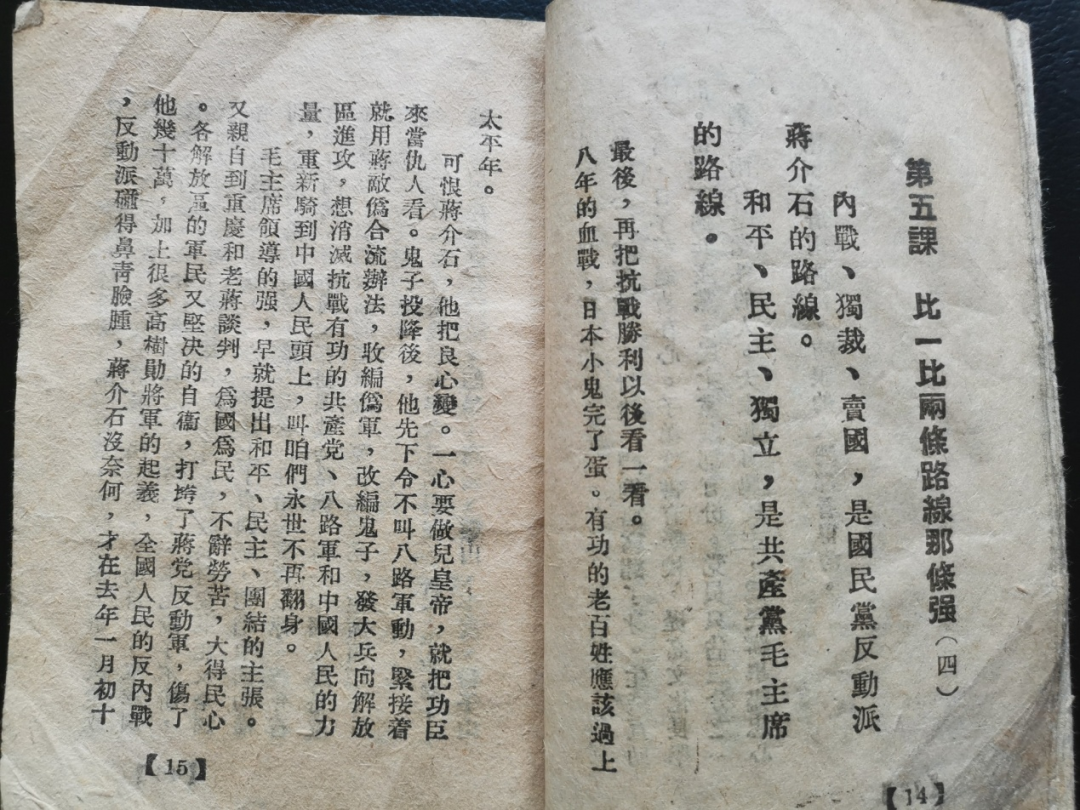 第五課　比一比兩條路線那條强(四)
內戰、獨裁、賣國，是國民黨反動派
蔣介石的路線。
和平、民主、獨立，是共產黨毛主席
的路線。
最後，再把抗戰勝利以後看一看。
八年的血戰，日本小鬼完了蛋。有功的老百姓應該過上
【14】
太平年。
可恨蔣介石，他把良心變。一心要做兒皇帝，就把功臣
來當仇人看。鬼子投降後，他先下令不叫八路軍動，緊接着
就用蔣敵僞合流辦法，收編僞軍，改編鬼子，發大兵向解放
區進攻，想消滅抗戰有功的共產党、八路軍和中國人民的力
量，重新騎到中國人民頭上，叫咱們永世不再翻身。
毛主席領導的强，早就提出和平、民主、團結的主張。
又親自到重慶和老蔣談判，爲國爲民，不辭勞苦，大得民心
。各解放區的軍民又堅决的自衞，打垮了蔣党反動軍，傷了
他幾十萬，加上很多高樹勛將軍的起義，全國人民的反內戰
，反動派碰得鼻靑臉腫，蔣介石沒奈何，才在去年一月初十
【15】